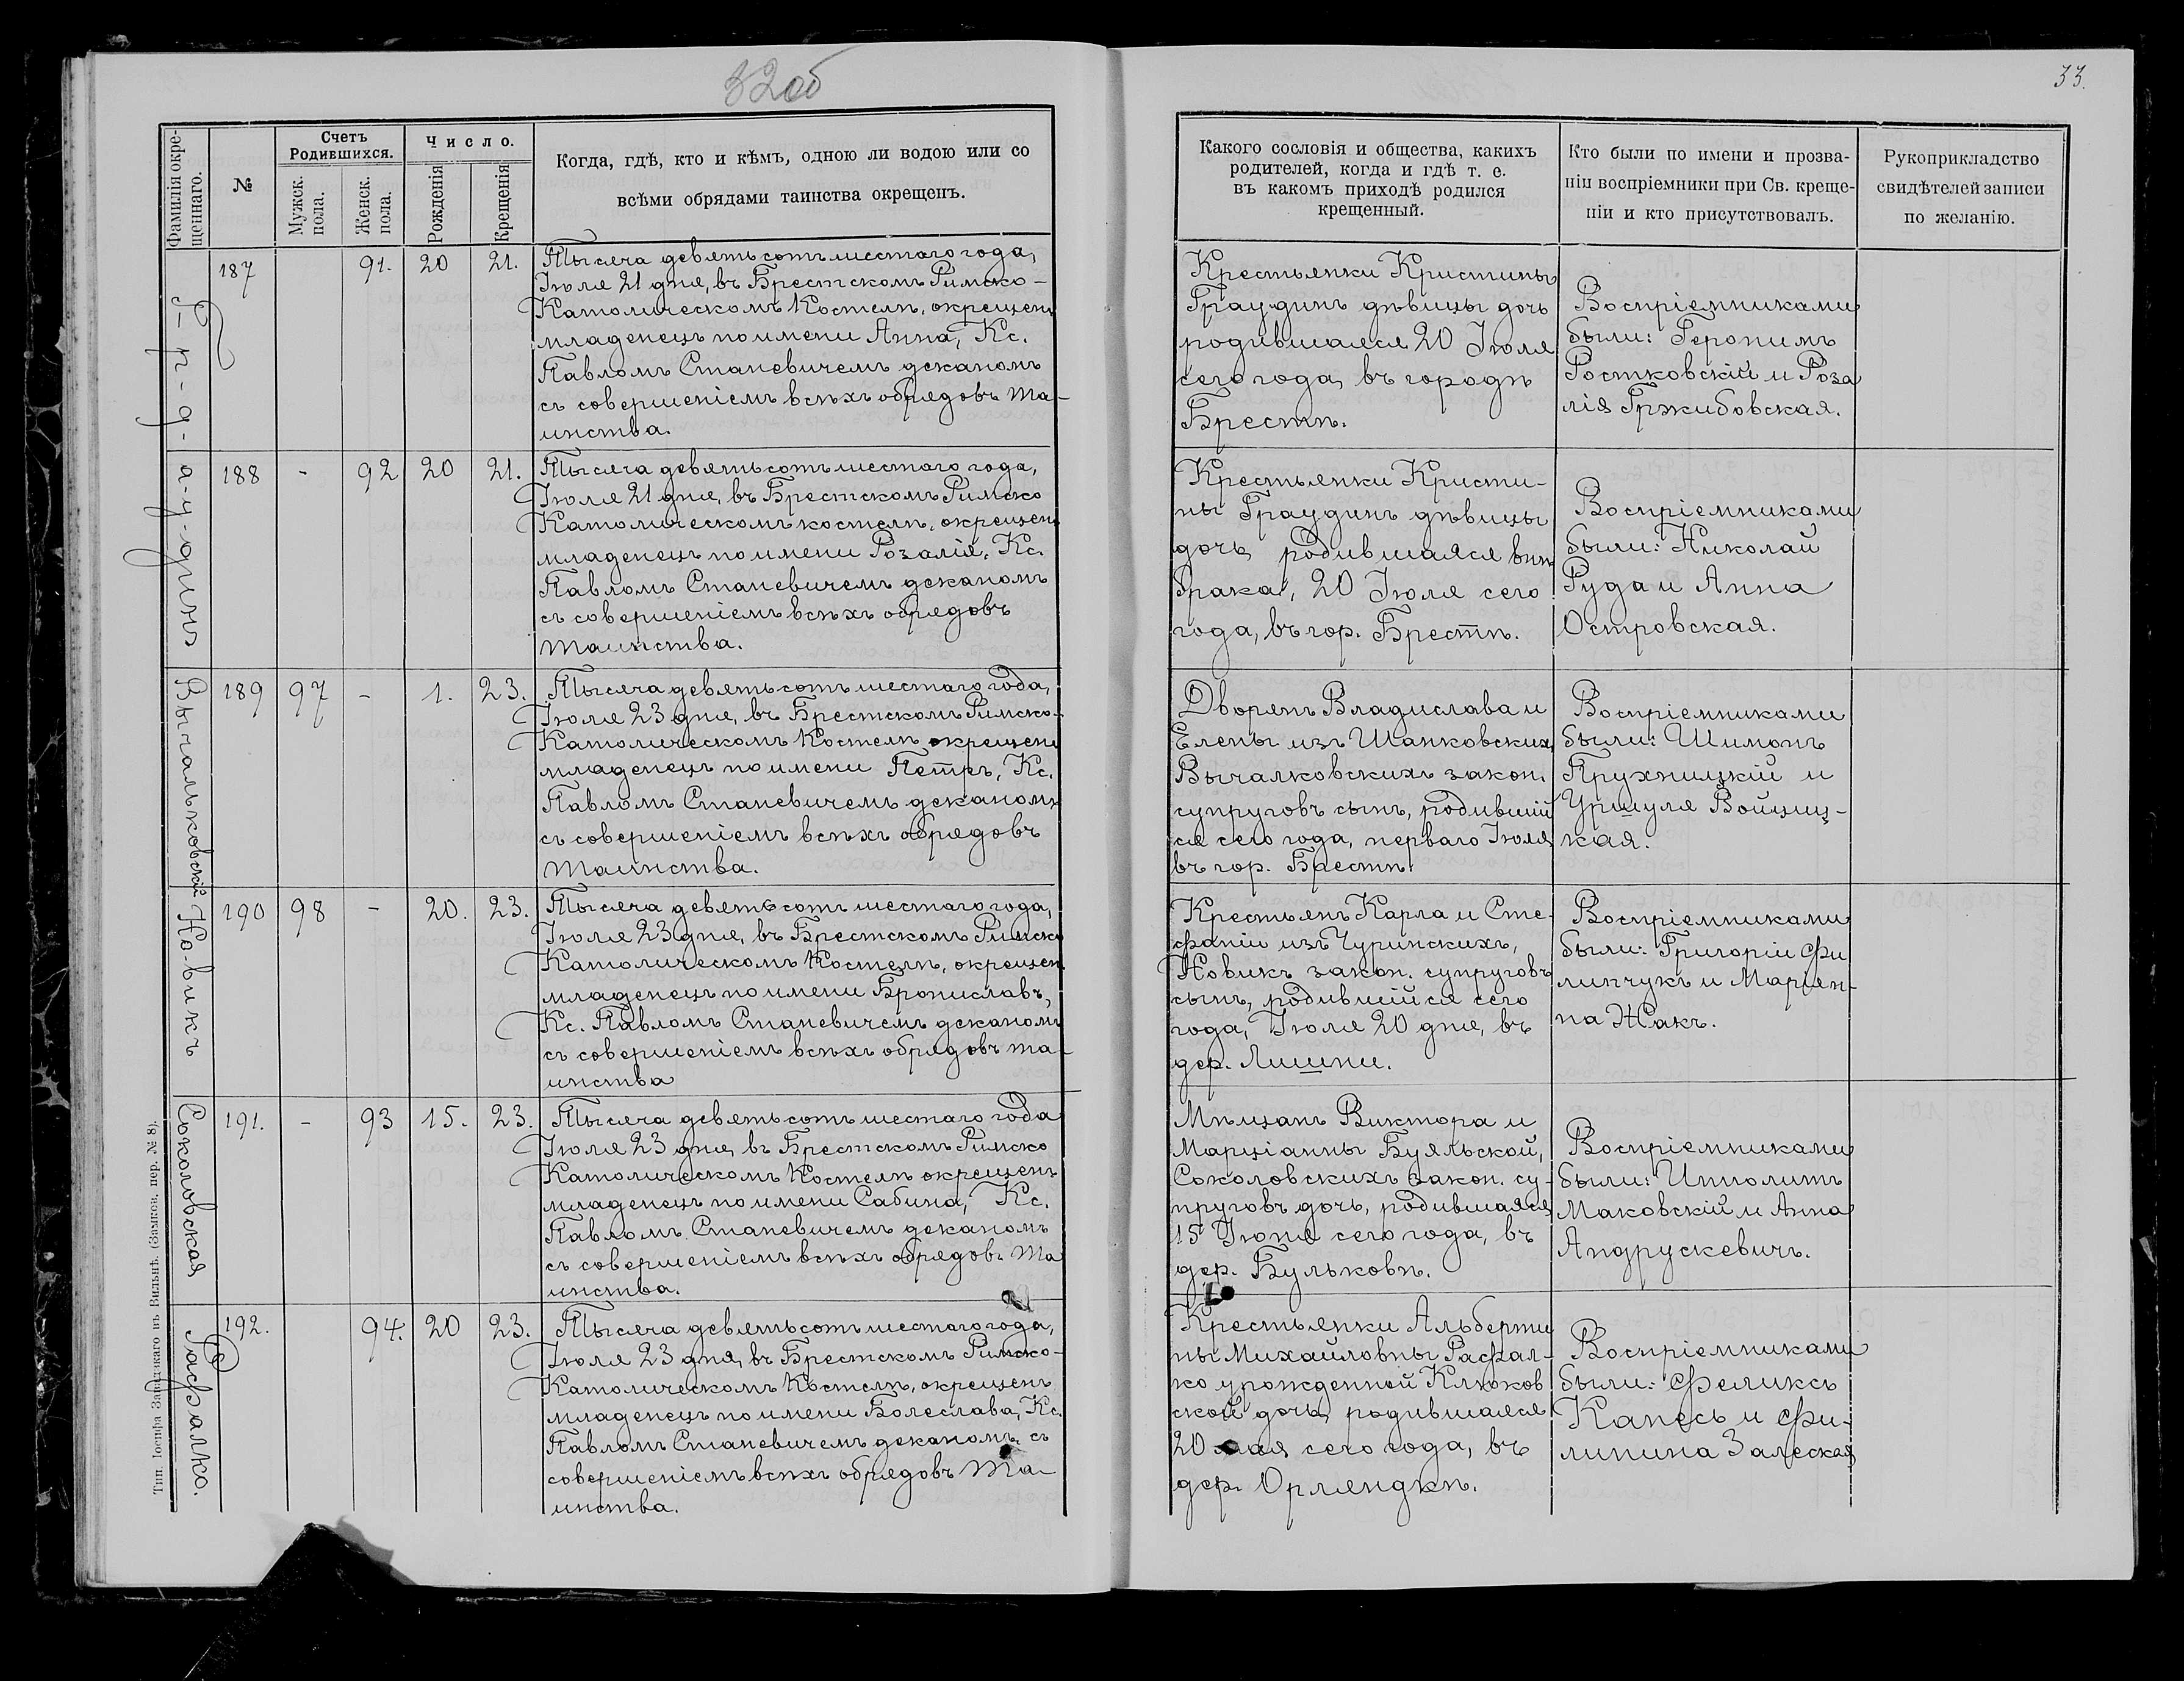 32об
33.
Фамилія окре-
щеннаго.
№
Счетъ
Родившихся.
Мужск.
пола.
Женск.
пола.
Число.
Рожденія
Крещенія
Когда, гдѣ, кто и кѣмъ, одною ли водою или со
всѣми обрядами таинства окрещенъ.
Какого сословія и общества, какихъ
родителей, когда и гдѣ т. е.
въ какомъ приходѣ родился
крещенный.
Кто были по имени и прозва-
ніи воспріемники при Св. креще-
ніи и кто присутствовалъ.
Рукоприкладство
свидѣтелей записи
по желанію.
187
91.
20
21.
Тысяча девятьсотъ шестаго года,
Іюля 21 дня, въ Брестскомъ Римско-
Католическомъ Костелѣ, окрещенъ
младенецъ по имени Анна, Кс.
Павломъ Станевичемъ деканомъ
съ совершеніемъ всѣхъ обрядовъ Та-
инства.
Крестьянки Кристины
Граудинъ дѣвицы дочь
родившаяся 20 Іюля
сего года, въ городѣ
Брестѣ.
Воспріемниками
были: Геронимъ
Ростковскій и Роза
лія Гржибовская.
Г-р-а-у-динъ
188
-
92
20
21.
Тысяча девятьсотъ шестаго года,
Іюля 21 дня, въ Брестскомъ Римско
Католическомъ костелѣ, окрещенъ
младенецъ по имени Розалія, Кс.
Павломъ Станевичемъ деканомъ
съ совершеніемъ всѣхъ обрядовъ
Таинства.
Крестьянки Кристи-
ны Граудинъ дѣвицы
дочь, родившаяся внѣ
брака, 20 Іюля сего
года, въ гор. Брестѣ.
Воспріемниками
были: Николай
Руда и Анна
Островская.
Вычальковскій
189
97
-
1.
23.
Тысяча девятьсотъ шестаго года,
Іюля 23 дня, въ Брестскомъ Римско-
Католическомъ Костелѣ окрещенъ
младенецъ по имени Петръ, Кс.
Павломъ Станевичемъ деканомъ
съ совершеніемъ всѣхъ обрядовъ
Таинства.
Дворянъ Владислава и
Елены изъ Шанковскихъ,
Вычалковскихъ закон.
супруговъ сынъ, родившій
ся сего года, перваго Іюля
въ гор. Брестѣ.
Воспріемниками
были: Шимонъ
Прухницкій и
Уршуля Войциц-
кая.
Но-викъ
190
98
-
20.
23.
Тысяча девятьсотъ шестаго года,
Іюля 23 дня, въ Брестскомъ Римско
Католическомъ Костелѣ, окрещенъ
младенецъ по имени Брониславъ,
Кс. Павломъ Станевичемъ деканомъ
съ совершеніемъ всѣхъ обрядовъ та-
инства
Крестьянъ Карла и Сте-
фаніи изъ Чуринскихъ,
Новикъ закон. супруговъ
сынъ, родившійся сего
года, Іюля 20 дня, въ
дер. Лишни.
Воспріемниками
были: Григорій Фи
липчукъ и Маріян-
на Жакъ.
Соколовская
191.
-
93
15.
23.
Тысяча девятьсотъ шестаго года
Іюля 23 дня, въ Брестскомъ Римско
Католическомъ Костелѣ окрещенъ
младенецъ по имени Сабина, Кс.
Павломъ Станевичемъ деканомъ
съ совершеніемъ всѣхъ обрядовъ Та
инства.
Мѣщанъ Виктора и
Марціанны Буяльской,
Соколовскихъ закон. су-
пруговъ дочь, родившаяся
15 Іюня сего года, въ
дер. Бульковѣ.
Воспріемниками
были: Ипполитъ
Маковскій и Анна
Андрускевичъ.
Рафалко.
192.
94.
20
23.
Тысяча девятьсотъ шестаго года,
Іюля 23 дня, въ Брестскомъ Римско-
Католическомъ Костелѣ, окрещенъ
младенецъ по имени Болеслава, Кс.
Павломъ Станевичемъ деканомъ, съ
совершеніемъ всѣхъ обрядовъ Та-
инства.
Крестьянки Альберти
ны Михайловны Рафал-
ко урожденной Клюков
ской дочь, родившаяся
20 мая сего года, въ
дер. Орляндкѣ.
Воспріемниками
были: Феликсъ
Канесъ и Фи-
липина Залеская
Тип. Іосифа Завадзкаго въ Вильнѣ. (Замков. пер. № 8).